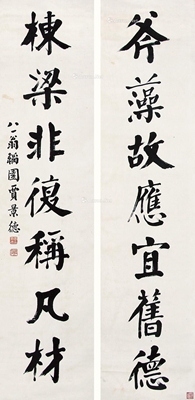 斧藻故應宜舊德
棟梁非復稱凡材
八一翁韜園賈景德